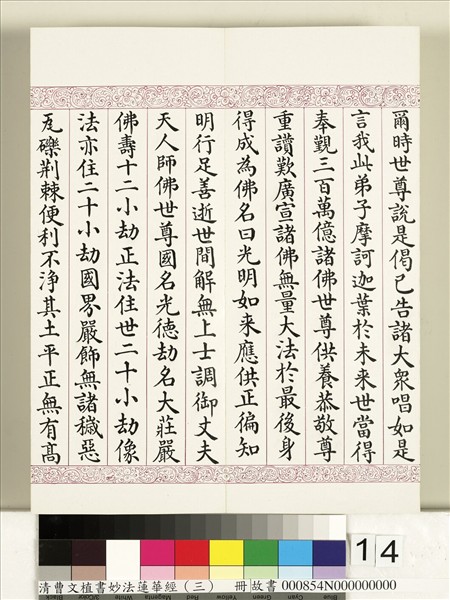 爾時世尊說是偈已告諸大衆唱如是
言我此弟子摩訶迦葉於未来世當得
奉覲三百萬億諸佛世尊供養恭敬尊
重讃歎廣宣諸佛無量大法於最後身
得成為佛名曰光明如来應供正徧知
明行足善逝世間解無上士調御丈夫
天人師佛世尊國名光德劫名大莊嚴
佛壽十二小劫正法住世二十小劫像
法亦住二十小劫國界嚴飾無諸穢惡
瓦礫荆棘便利不淨其土平正無有髙
14
清曹文植書妙法蓮華經（三） 冊 故書 000854N000000000